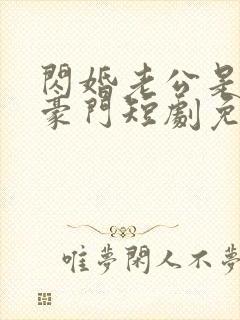 閃婚老公是
豪門短劇免
唯夢閑人不夢